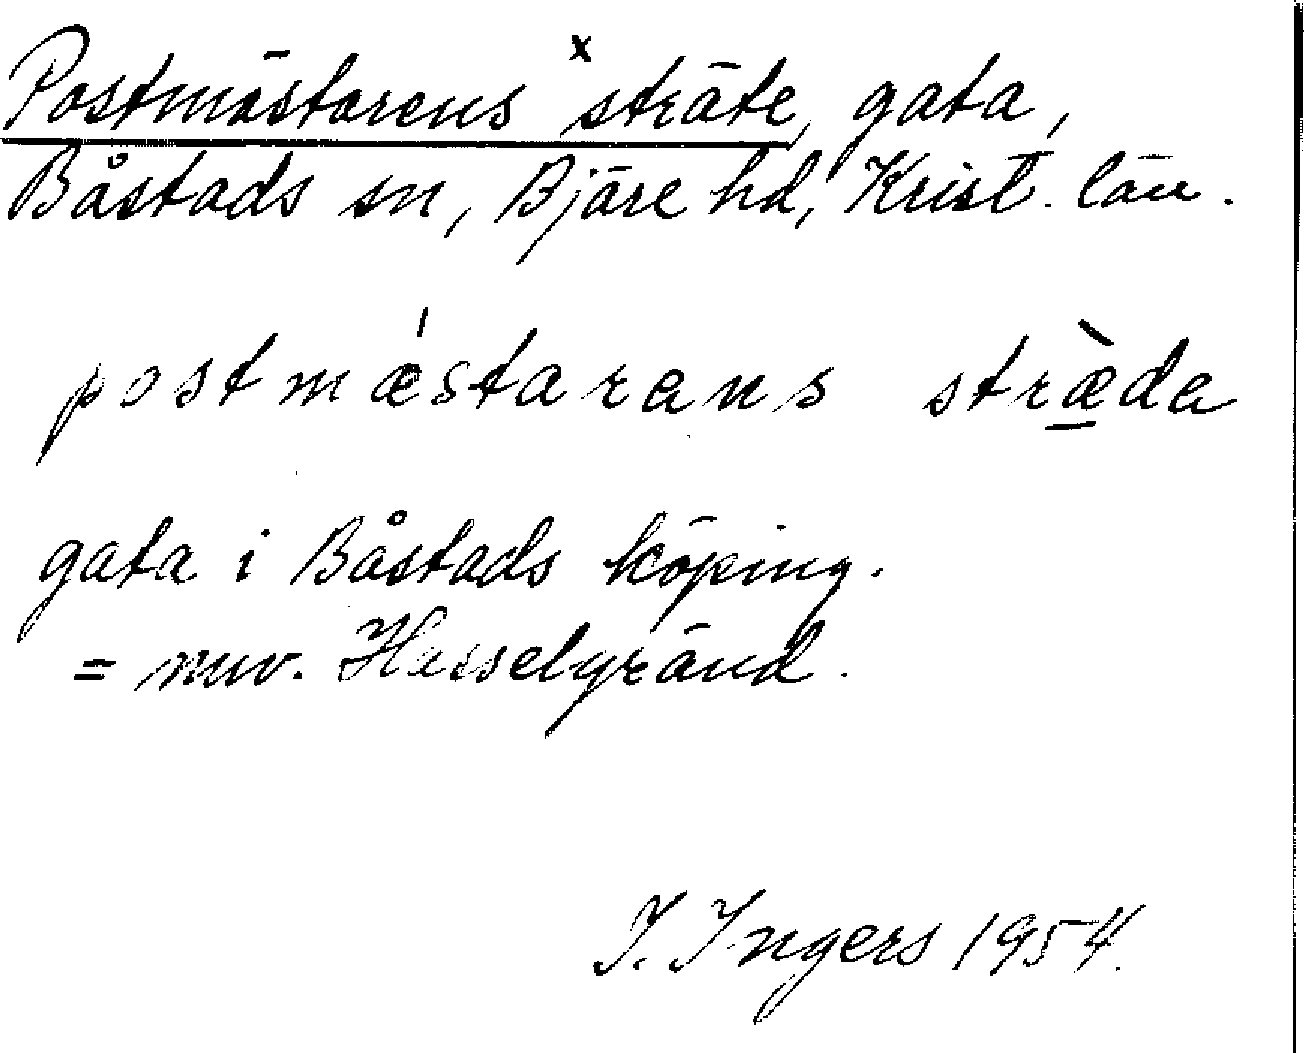 Postmästarens ˣsträte, gata,
Båstads sn, Bjäre hd, Krist. län.
postmǽstarans stræ̀da
gata i Båstads köping.
= nuv. Hasselgränd.
I. Ingers 1954.